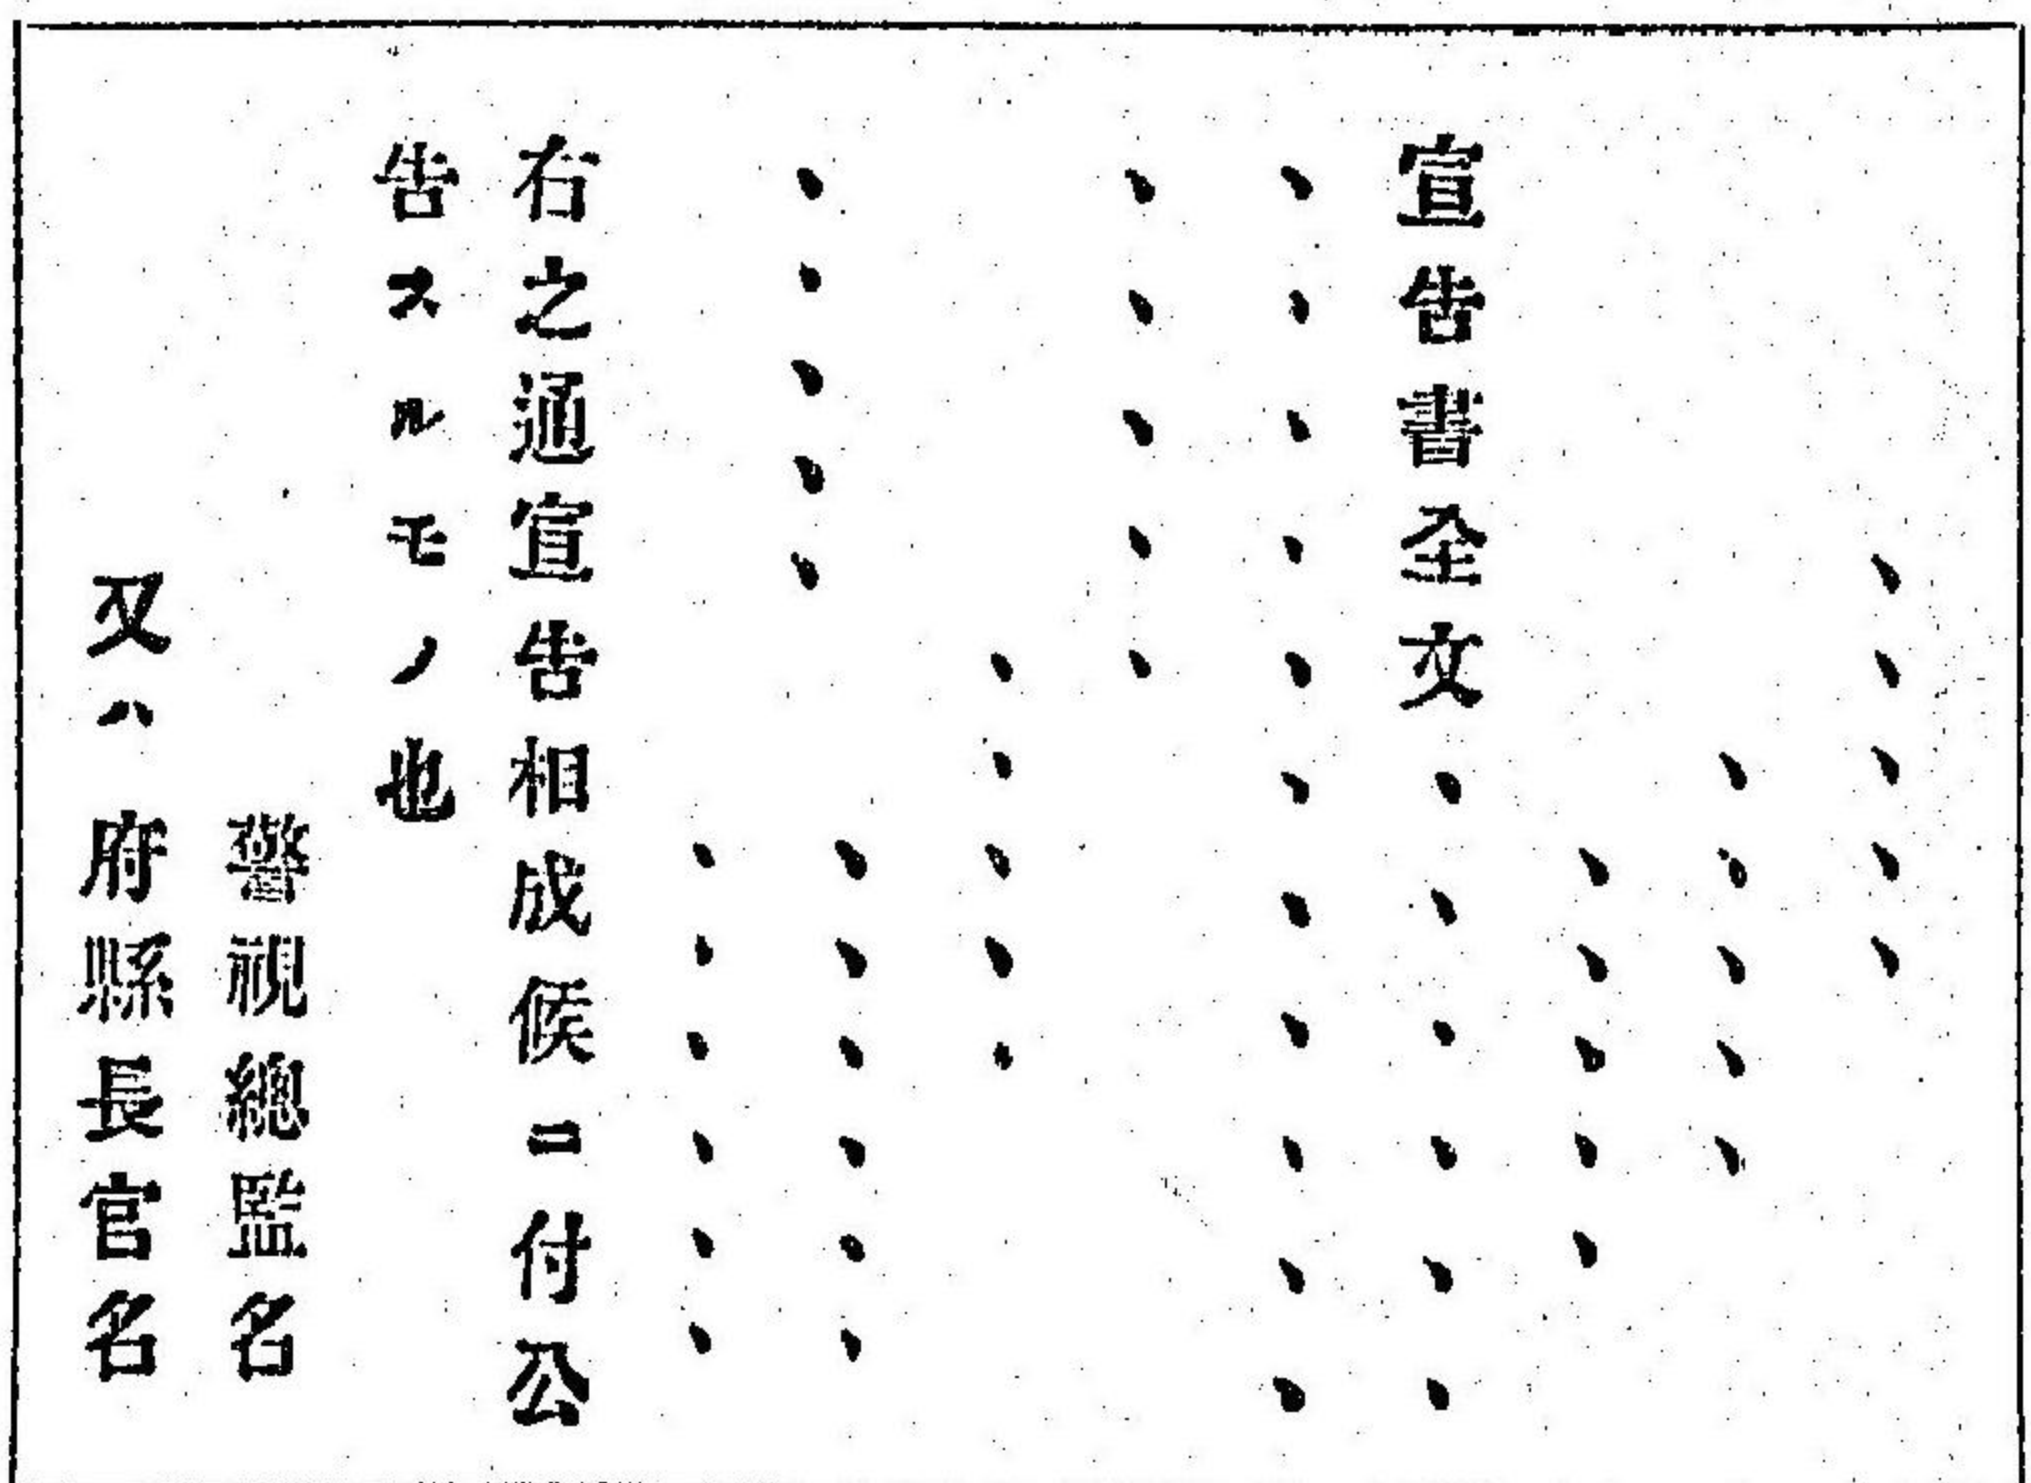 、、、、、
、、、、、
、、、、、
宣告書全文、、、、、、
、、、、、、、、、、、
、、、、、
、、、、、
、、、、、、
、、、、、
、、、、、、
右之通宣告相成候ニ付公
告スルモノ也
警視總監名
又ハ府縣長官名